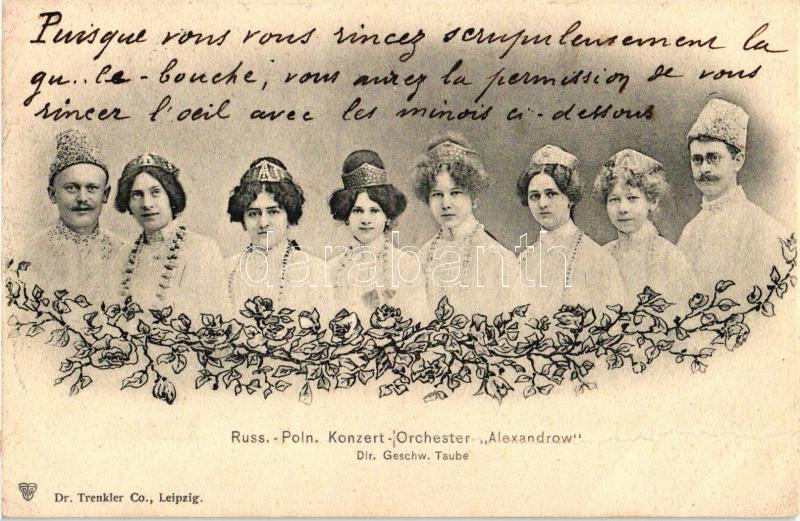 Puisque vous vous rincez scrupuleusement la
gu..le-bouche, vous aurez la permission de vous
rincer l'oeil avec les minois ci-dessous
darabanth
Russ.-Poln. Konzert-Orchester „Alexandrow"
Dir. Geschw. Taube
Dr. Trenkler Co., Leipzig.